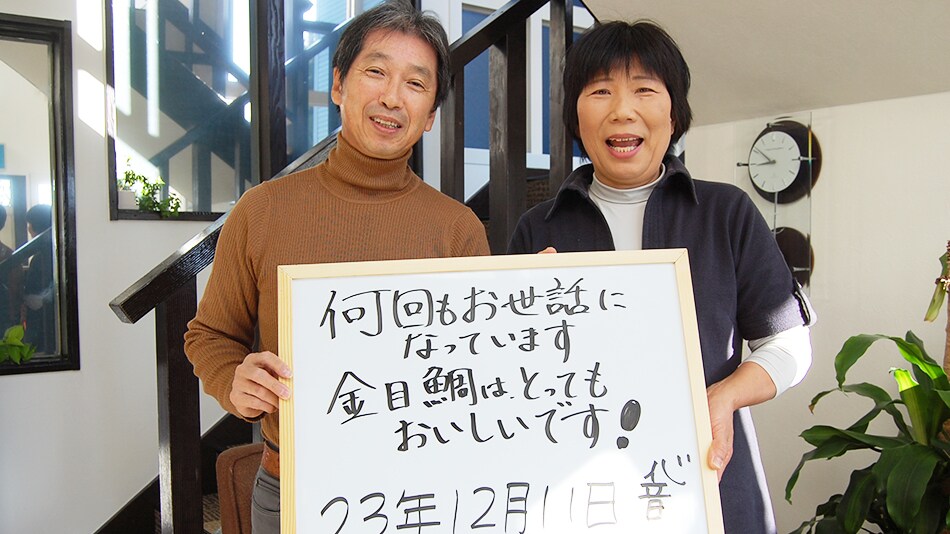 何回もお世話に
なっています
金目鯛は、とっても
おいしいです!
23年12月11日